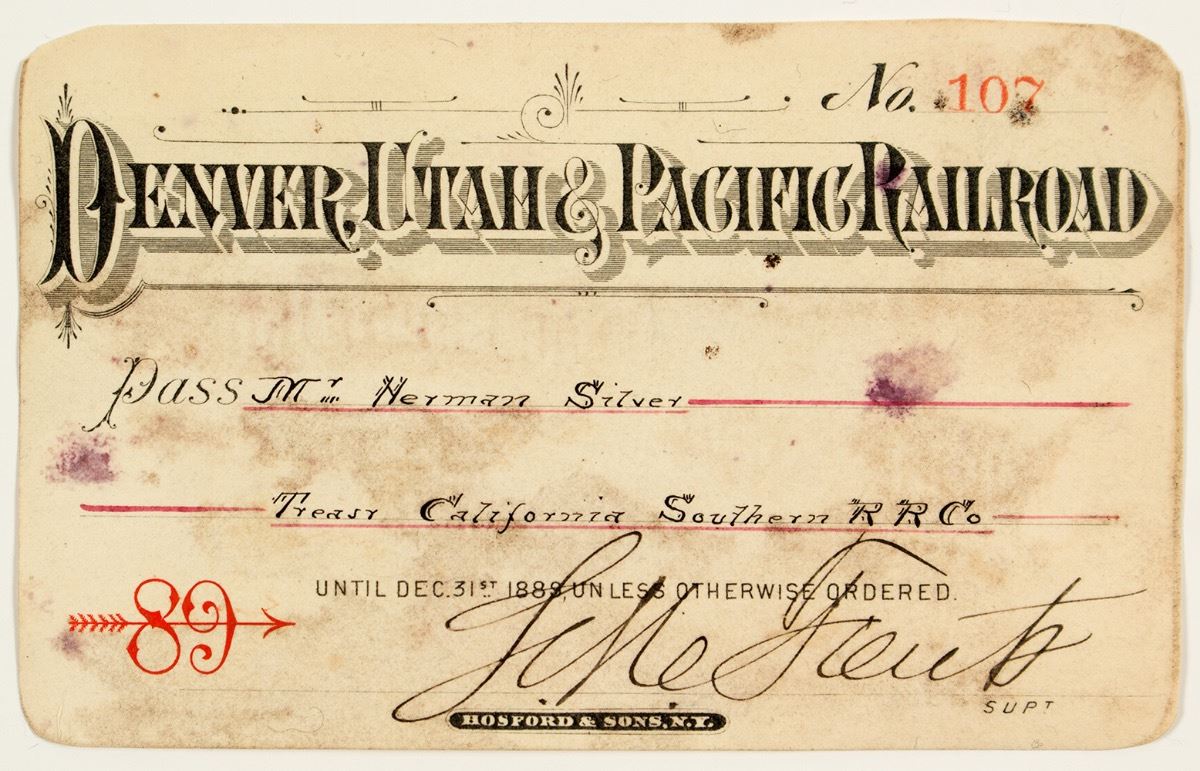 No. 107
DENVER, UTAH & PACIFIC RAILROAD
Pass Mr. Herman Silver
Treasr California Southern R R Co
UNTIL DEC. 31ST 1889, UNLESS OTHERWISE ORDERED.
89
SUPT
HOSFORD & SONS, N.Y.